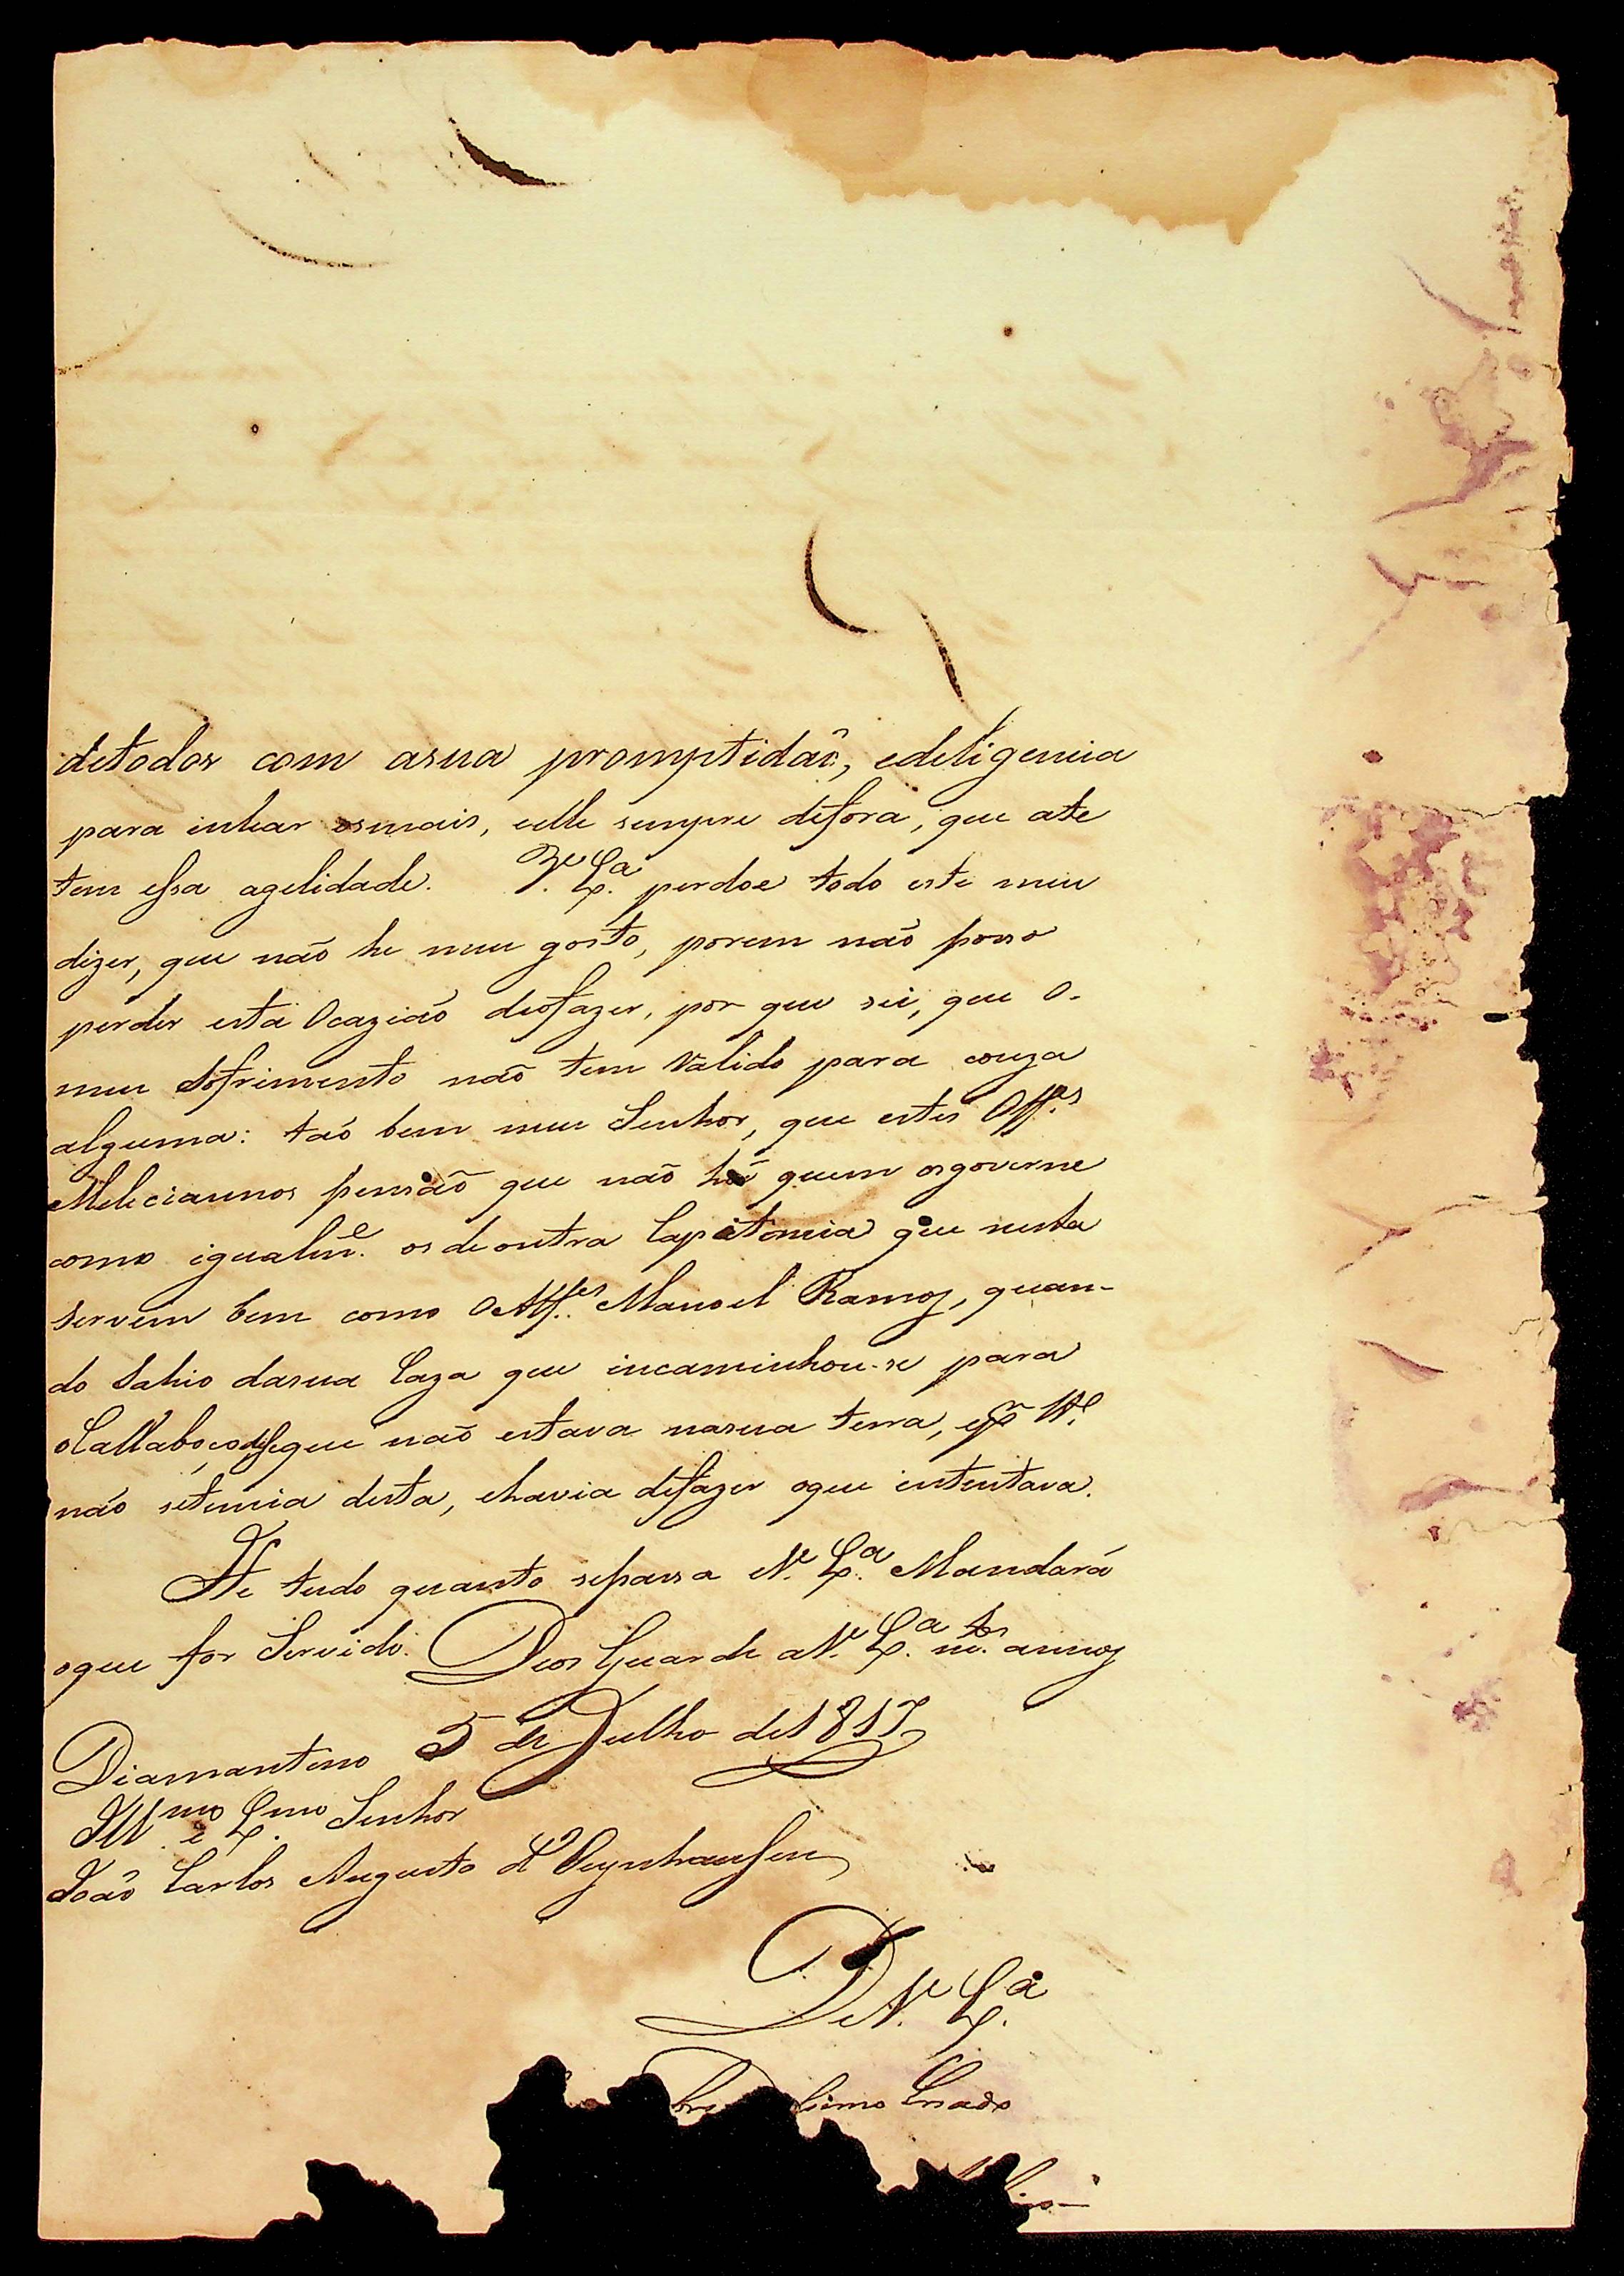 detodos com asua promptidaõ, edeligencia
para intrar osmais, eelle sempre defora, que ate
tem essa agelidade. V.ᵉ Ex.ᵃ perdoe todo este meu
dizer, que não he meu gosto, porem não posso
perder esta Ocazião deofazer, por que sei, que o-
meu Sofrimento não tem Valido para couza
alguma: taõ bem meu Senhor, que estes Off.ᵉˢ
Meliciannos pensão que não há quem osgoverne
como igualm.ᵉ os de outra Capitomia que nesta
servem bem como OAlf.ᵉˢ Manoel Ramos, quan-
do Sahio dasua Caza que incaminhou-se para
oCallaboço, disse que não estava nasua terra,
não setemia desta, ehavia defazer oque intentava.
He tudo quanto sepassa V.ᵉ Ex.ᵃ Mandará
oque for Servido. Deos Guarde aV.ᵉ Ex.ᵃ m.ᵗᵒˢ annos
Diamantino 5 de Julho de1817
Ill.ᵐᵒ e Ex.ᵐᵒ Senhor
João Carlos Augusto d'Oeynhausen
DeV.ᵉ Ex.ᵃ
Criado